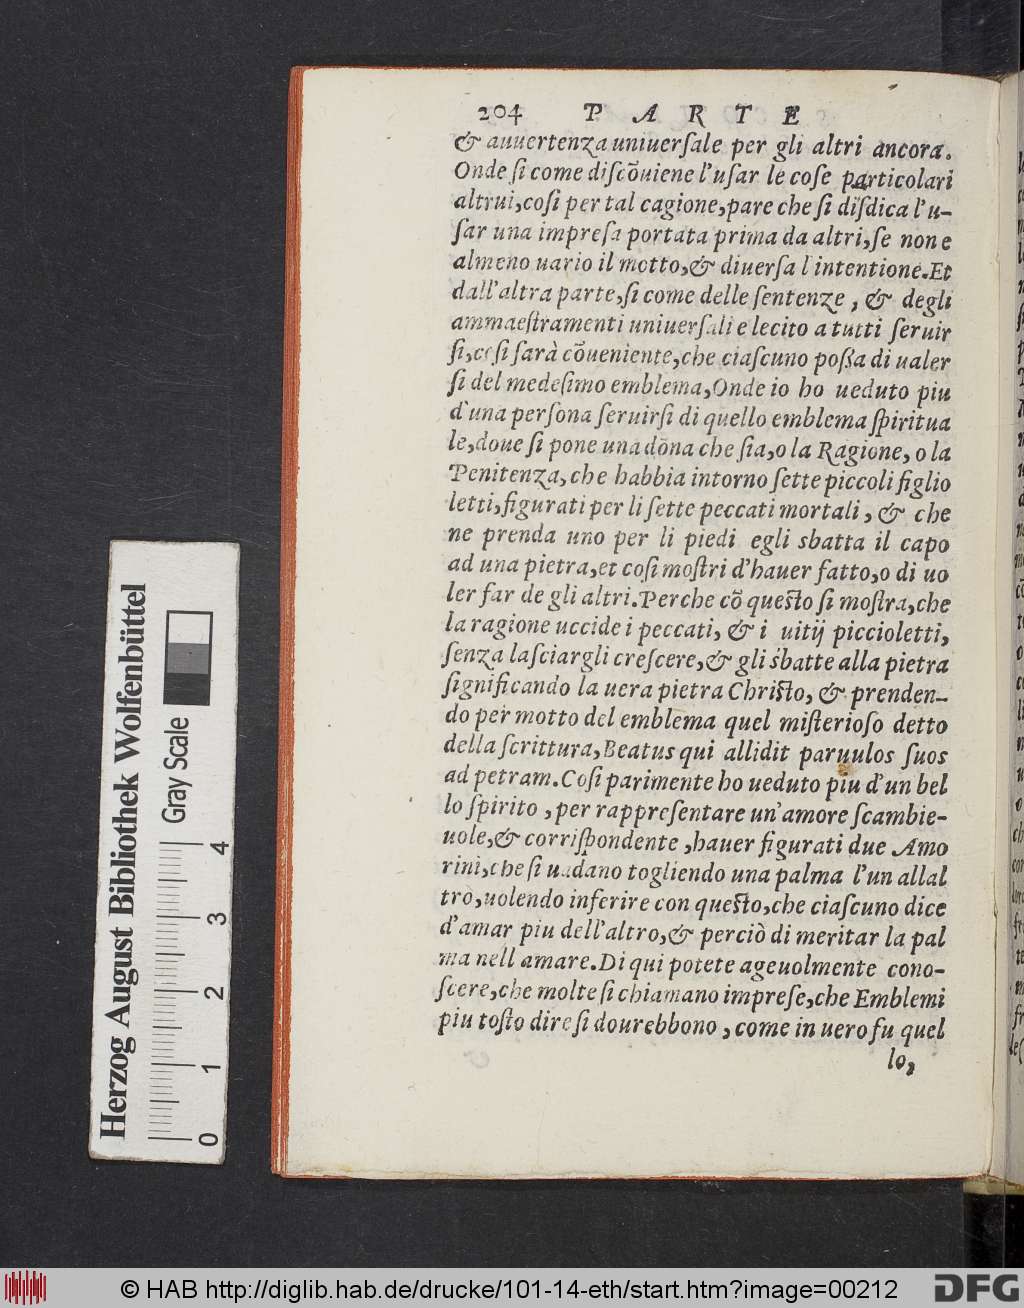 204 PARTE
& auuertenza uniuerſale per gli altri ancora.
Onde ſi come diſcõuiene l'uſar le coſe particolari
altrui,coſi per tal cagione,pare che ſi diſdica l'u-
ſar una impreſa portata prima da altri,ſe non e
almeno uario il motto,& diuerſa l'intentione.Et
dall'altra parte,ſi come delle ſentenze, & degli
ammaeſtramenti uniuerſali e lecito a tutti ſeruir
ſi,coſi ſarà cõueniente,che ciaſcuno poſſa di ualer
ſi del medeſimo emblema,Onde io ho ueduto piu
d'una perſona ſeruirſi di quello emblema ſpiritua
le,doue ſi pone una dõna che ſia,o la Ragione, o la
Penitenza,che habbia intorno ſette piccoli figlio
letti,figurati per li ſette peccati mortali, & che
ne prenda uno per li piedi egli sbatta il capo
ad una pietra,et coſi moſtri d'hauer fatto,o di uo
ler far de gli altri.Perche cõ queſto ſi moſtra,che
la ragione uccide i peccati, & i uitij piccioletti,
ſenza laſciargli creſcere,& gli sbatte alla pietra
ſignificando la uera pietra Chriſto, & prenden-
do per motto del emblema quel miſterioſo detto
della ſcrittura,Beatus qui allidit paruulos ſuos
ad petram.Coſi parimente ho ueduto piu d'un bel
lo ſpirito, per rappreſentare un'amore ſcambie-
uole,& corriſpondente, hauer figurati due Amo
rini,che ſi uadano togliendo una palma l'un allal
tro,uolendo inferire con queſto,che ciaſcuno dice
d'amar piu dell'altro,& perciò di meritar la pal
ma nell amare.Di qui potete ageuolmente cono-
ſcere,che molte ſi chiamano impreſe,che Emblemi
piu toſto dire ſi dourebbono, come in uero fu quel
lo,
Herzog August Bibliothek Wolfenbüttel
Gray Scale
0 1 2 3 4
© HAB http://diglib.hab.de/drucke/101-14-eth/start.htm?image=00212
DFG